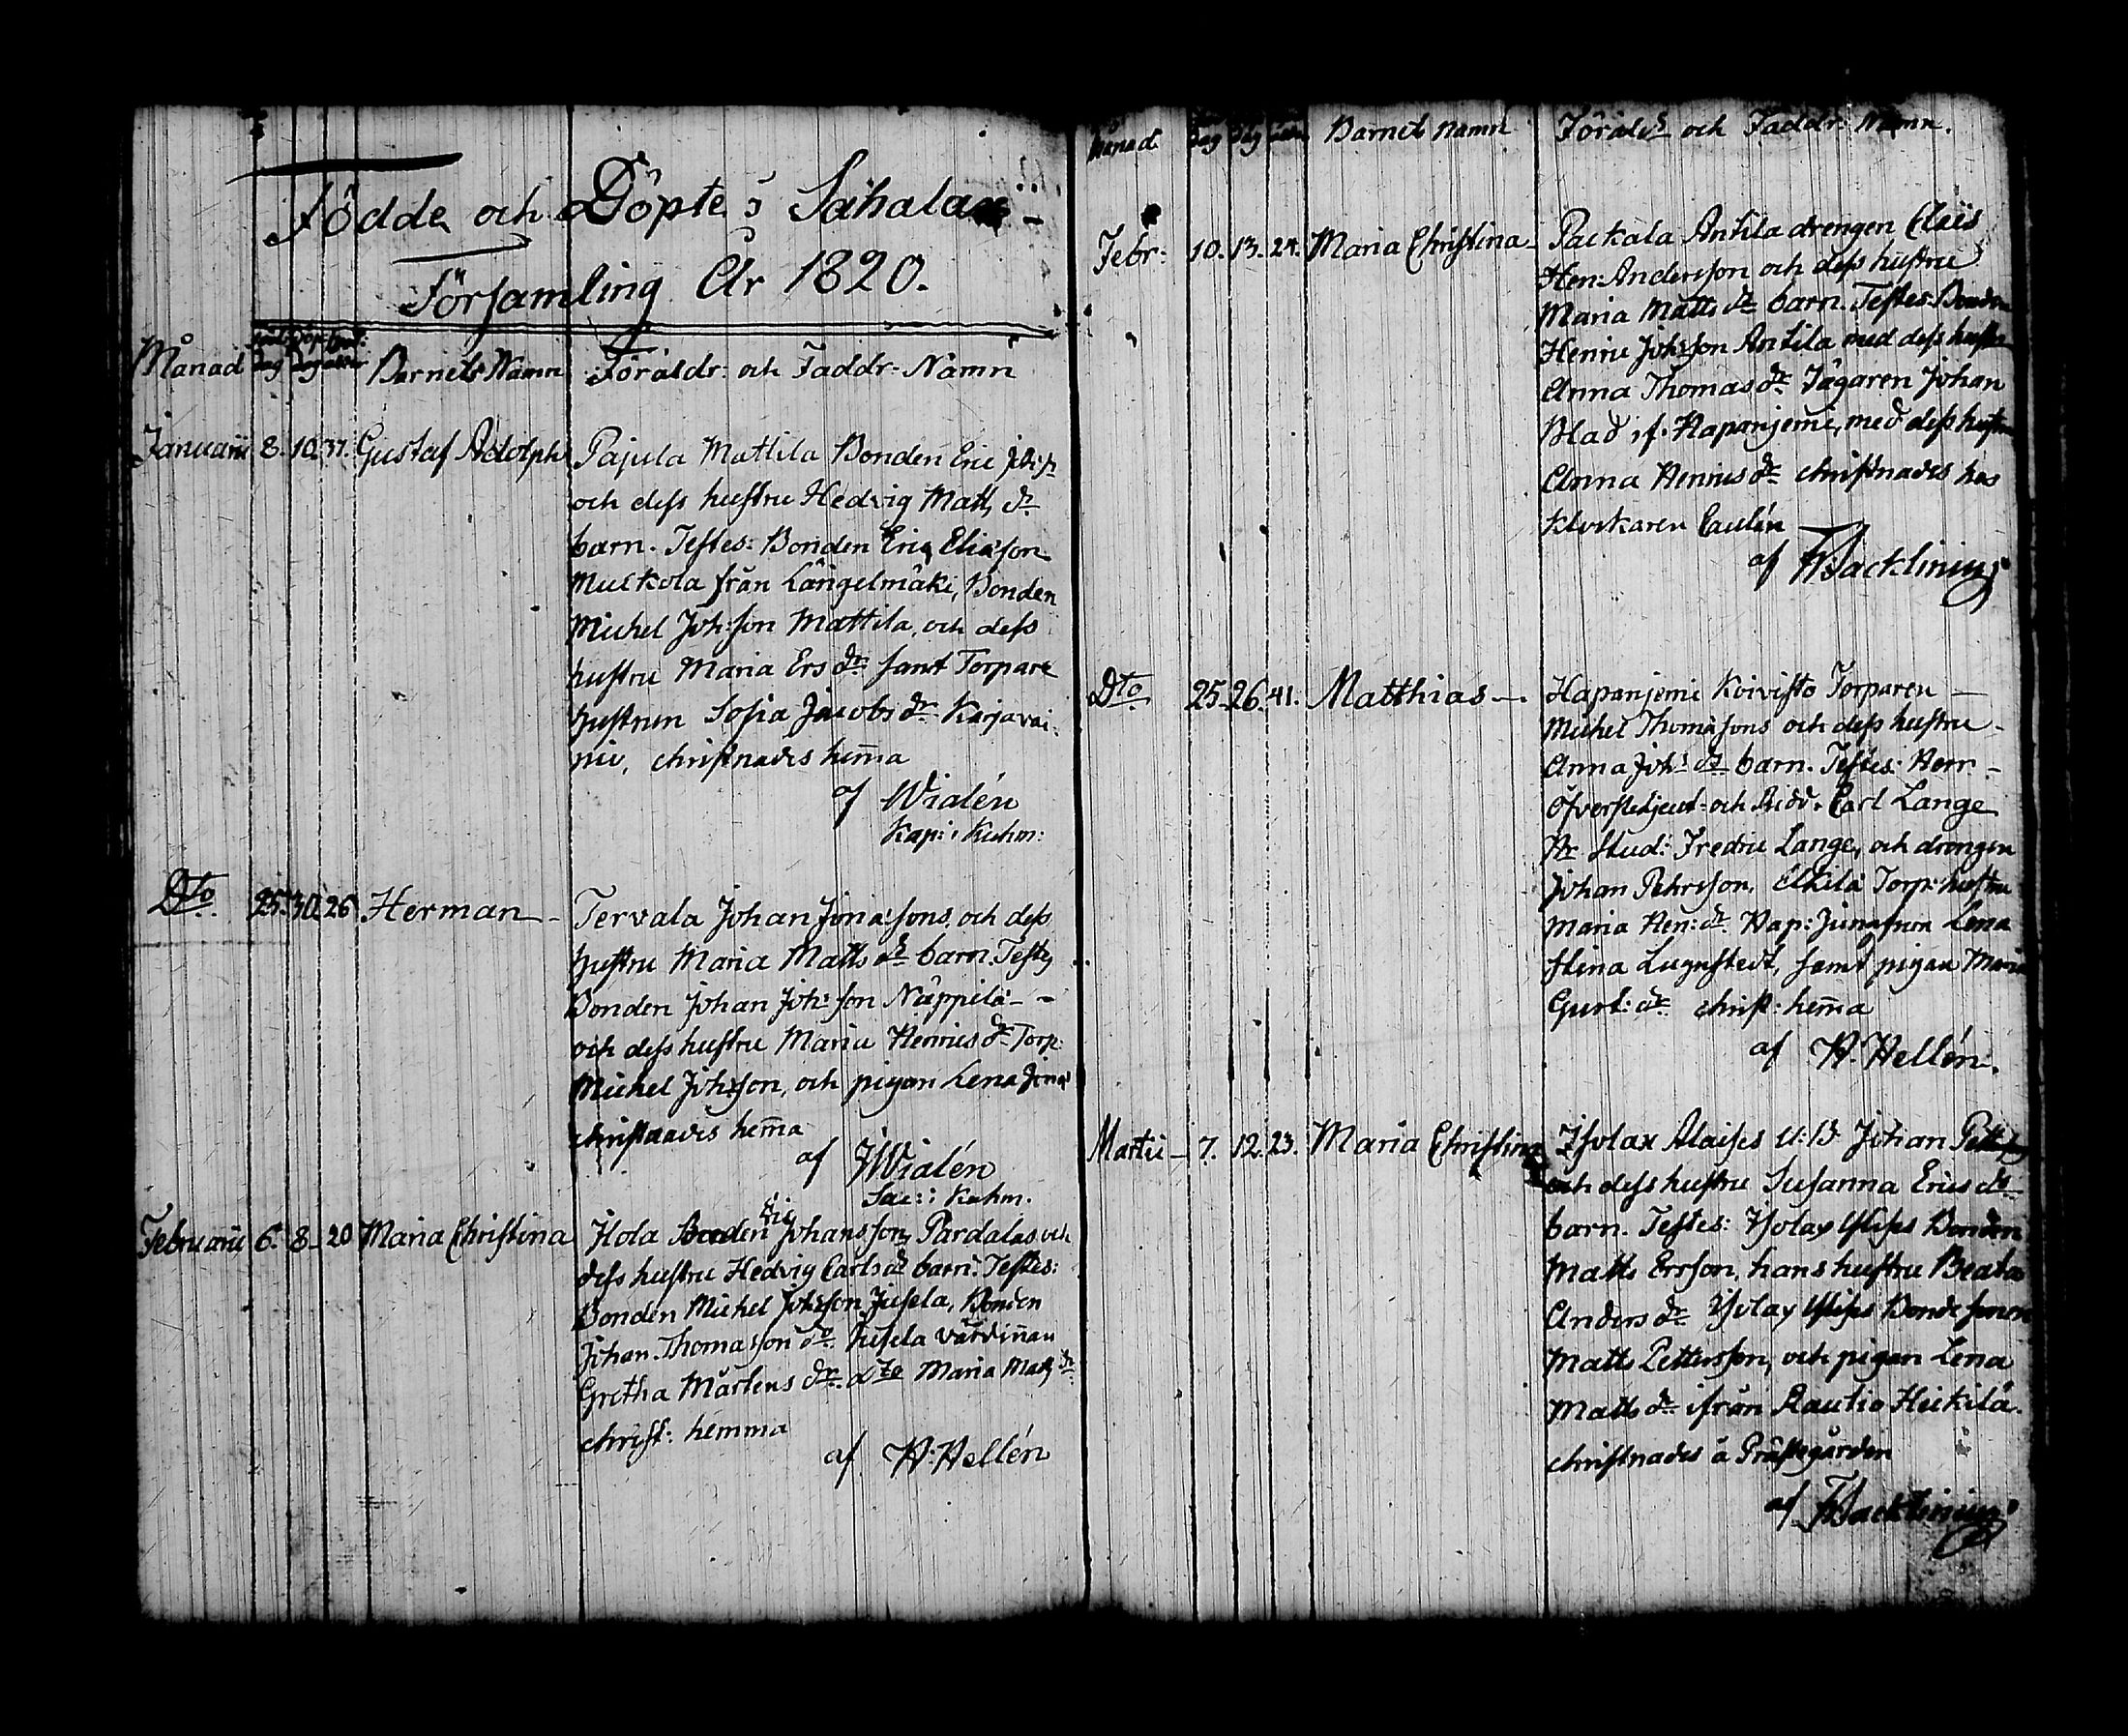 Födde och Döpte i Sahalax
Församling År 1820.
Månad Föd: Dag Döp: Dag Barnets Namn Föräldr: och Faddr: Namn
Januarii 8. 10. 37. Gustaf Adolph Pajula Mattila Bonden Eric Joh:s
och dess hustru Hedvig Matts dr
barn. Testes: Bonden Eric Eliæson
Muckola från Längelmäki, Bonden
Michel Joh:sson Mattila, och dess
hustru Maria Ers dr samt Torpare
hustrun Sofia Jacobs dr Karjavai-
nio, christnades hem̄a
af Wialén
Kap: i Kuhm:
Dto 25. 30. 26. Herman Tervala Johan Jonæsons, och dess
hustru Maria Matts dr barn. Testes
Bonden Johan Joh:sson Näppilä
och dess hustru Maria Henrics dr Torp:
Michel Joh:sson, och pigan Lena Jonæ
christnades hem̄a
af Wialén
Sac: i Kuhm.
Februarii 6. 8. 20 Maria Christina Isola Bonden Eric Johansson Pardalas och
dess hustru Hedvig Carls dr barn. Testes:
Bonden Michel Joh:sson Jusela, Bonden
Johan Thomasson do Jusela värdin̄an
Gretha Mårtens dr dto Maria Matts dr
christ: hemma
af H: Hellén
Månad Dag Dag Barnets Namn Föräld:s och Faddr: Namn.
Febr: 10. 13. 24. Maria Christina Packala Antila drengen
Hen: Andersson och dess hustru
Maria Matts dr barn. Testes: Bonden
Henric Joh:sson Antila med dess hustru
Anna Thomas dr Jägaren Johan
Blad if. Hapanjemi, med dess hustru
Anna Henrics dr christnades hos
Klockaren Caulén
af Backlinius
Dto 25. 26. 41. Matthias Hapanjemi Koivisto Torparen
Michel Thomæsons och dess hustru
Anna Joh:s dr barn. Testes: Herr
Öfversteljeut: och Ridd. Carl Lange
Hr Stud: Fredric Lange, och drengen
Johan Pehrsson, Eskilä Torp: hustru
Maria Hen: dr. Hap: Jungfrun Lena
Stina Lugnstedt, samt pigan Maria
Gust: dr christ: hem̄a
af H. Hellén.
Martii 7. 12. 23. Maria Christina Isolax Alaises U: B. Johan Petters
och dess hustru Susanna Erics dr
barn. Testes: Isolax Bonden
Matts Ersson, hans hustru Beata
Anders dr Isolax Bondesonen
Matts Pettersson, och pigan Lena
Matts dr ifrån Rautio Heikilä.
christnades å Prästegården
af Backlinius